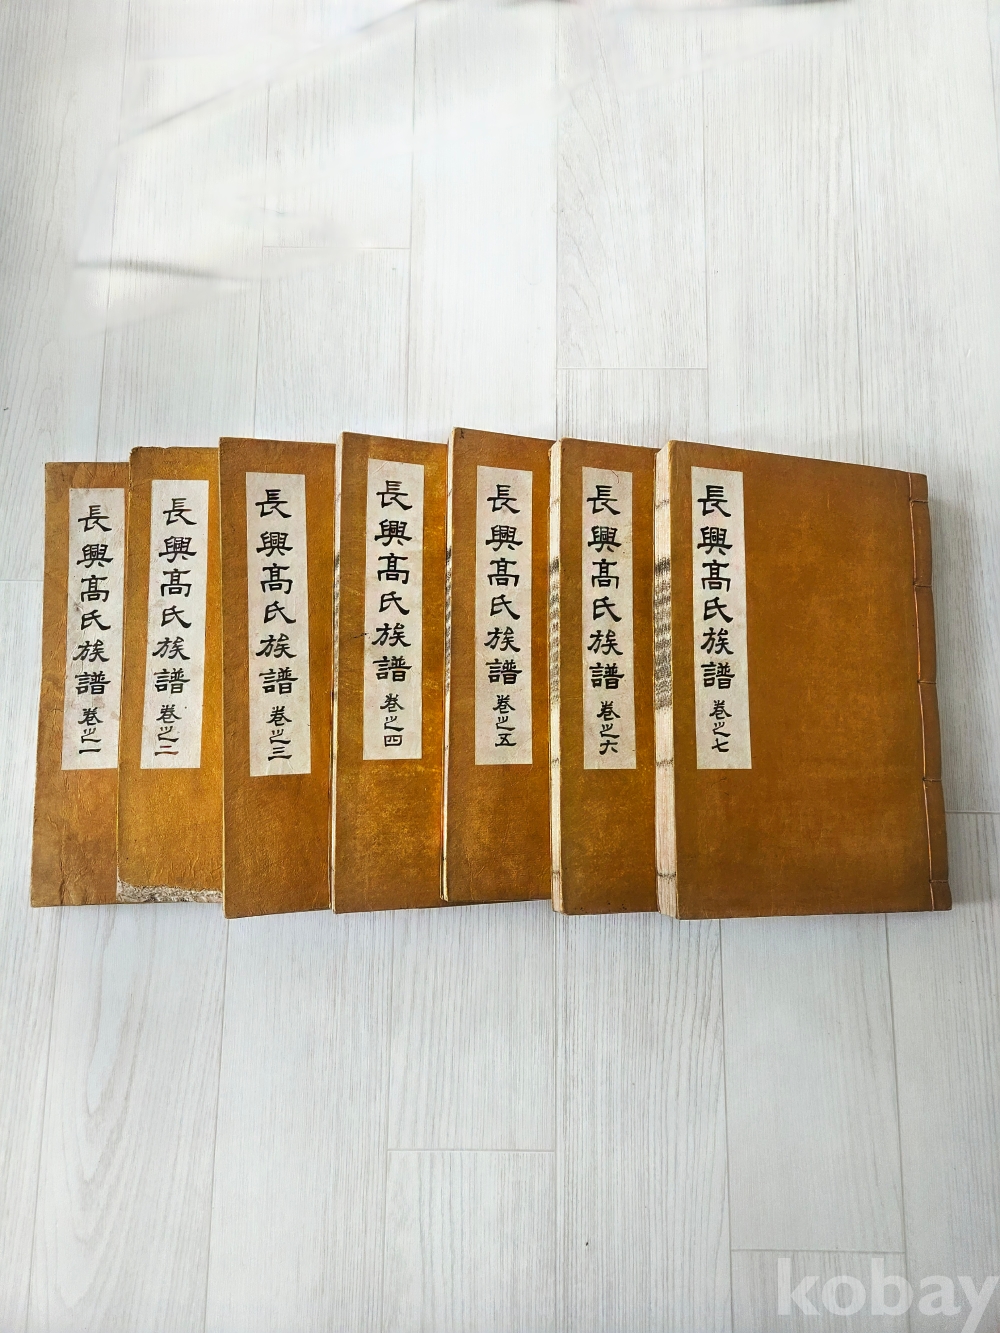 長興髙氏族譜 卷之一
長興髙氏族譜 卷之二
長興髙氏族譜 卷之三
長興髙氏族譜 卷之四
長興髙氏族譜 卷之五
長興髙氏族譜 卷之六
長興髙氏族譜 卷之七
kobay